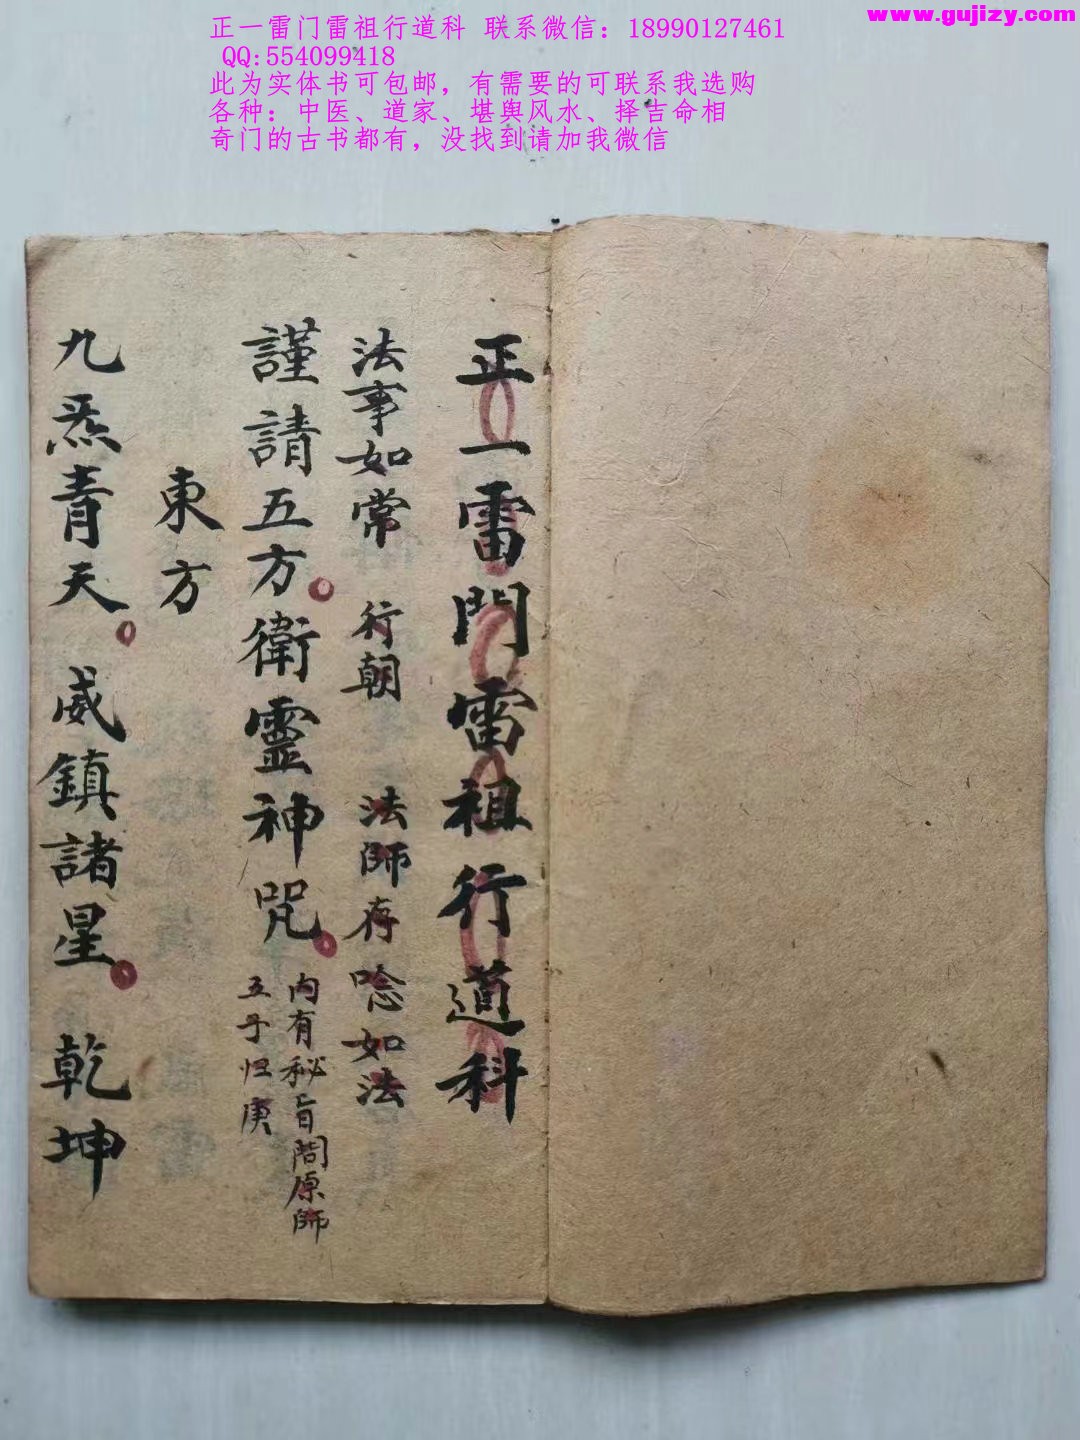 正一雷门雷祖行道科 联系微信：18990127461
QQ:554099418
此为实体书可包邮，有需要的可联系我选购
各种：中医、道家、堪舆风水、择吉命相
奇门的古书都有，没找到请加我微信
www.gujizy.com
正一雷門雷祖行道科
法事如常 行朝 法師存唸如法
謹請五方。衛靈神咒。
内有秘旨問原師
五子归庚
東方
九炁青天。威鎮諸星。乾坤